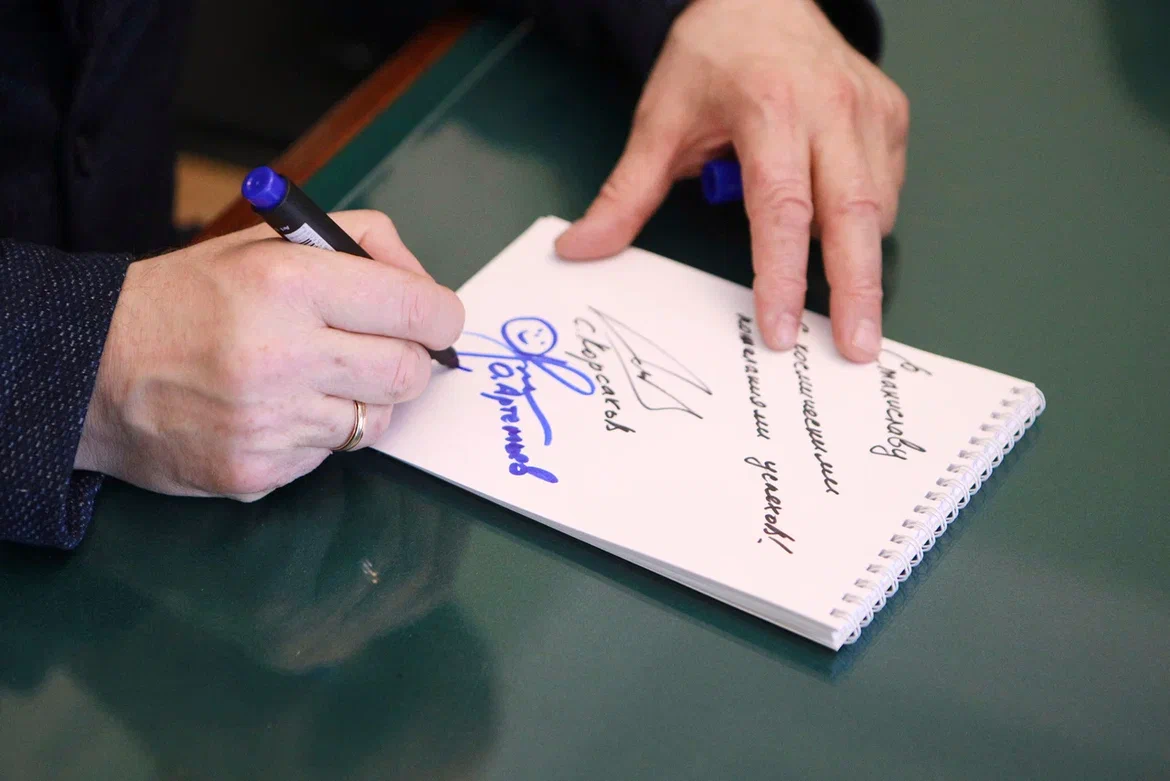 Станиславу
с космическими
пожеланиями успехов!
С Корсаков
О. Артемьев